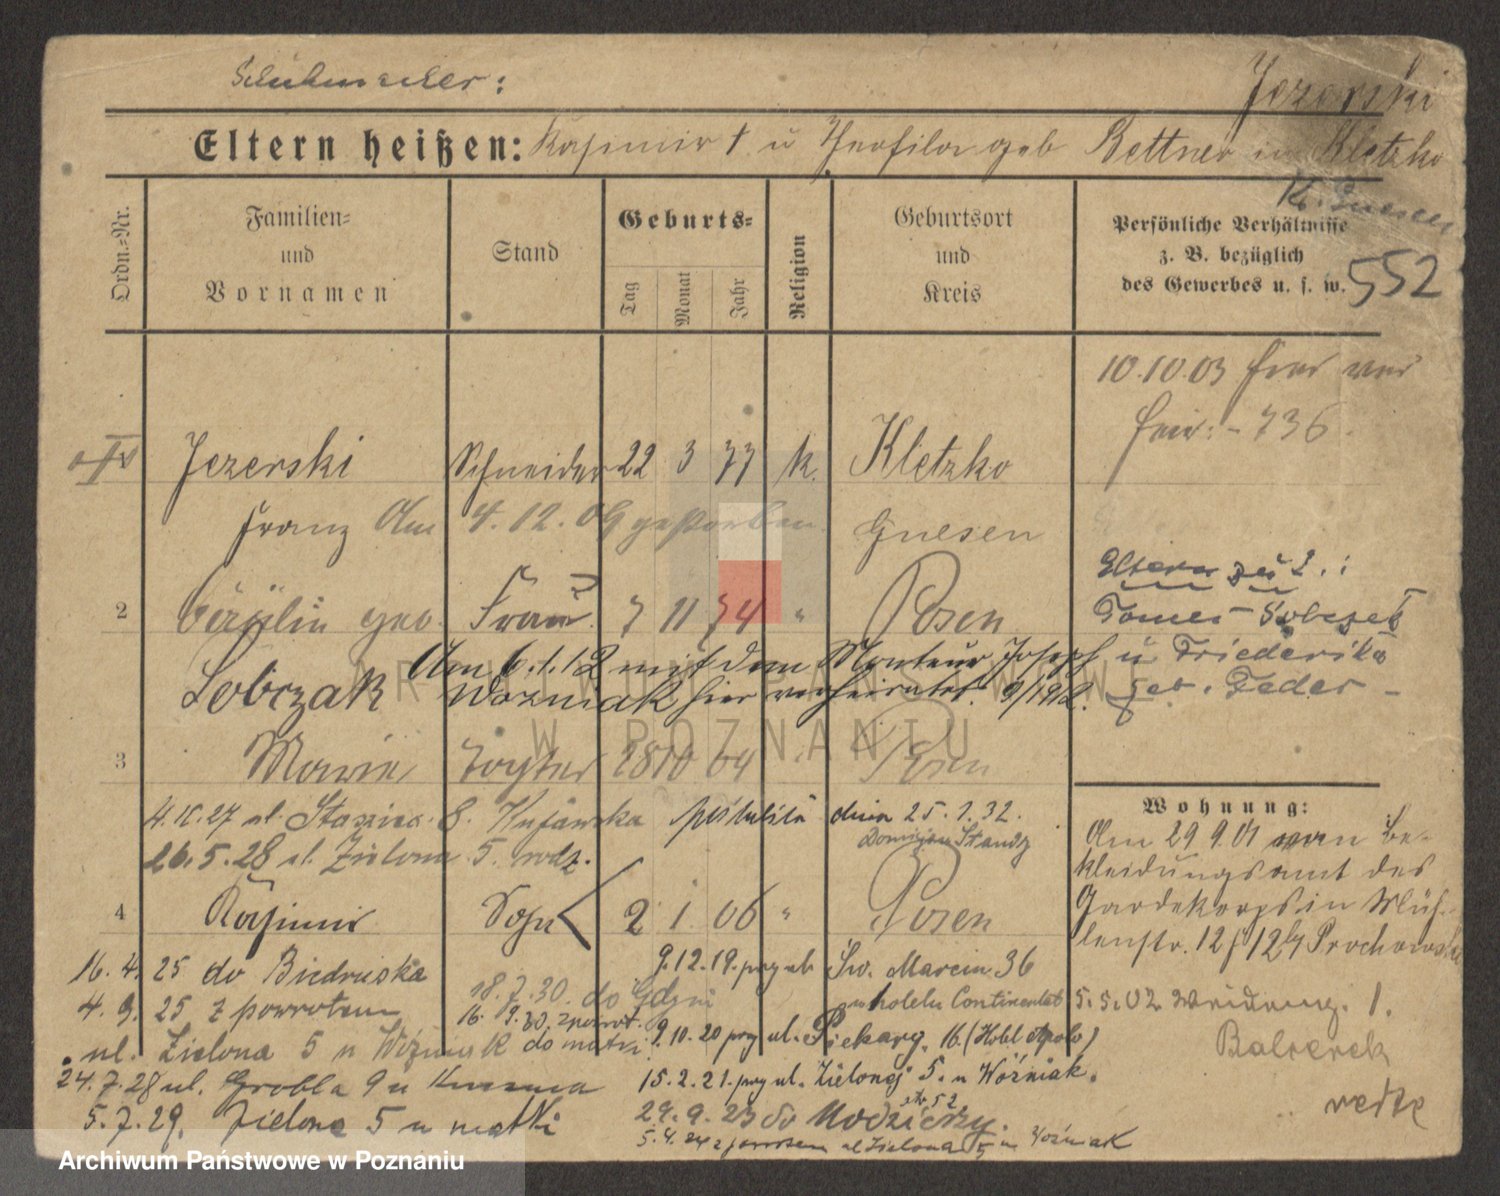 Schuhmacher:
Jezerski
Eltern heißen: Kasimir † u Theofila geb Bettner in Kletzko
Kr. Gnesen
Ordn.-Nr.
Familien- und Vornamen
Stand
Geburts-
Tag
Monat
Jahr
Religion
Geburtsort und Kreis
Persönliche Verhältnisse
z. B. bezüglich
des Gewerbes u. s. w.
552
10.10.03 hier
736.
Jezerski Schneider 22 3 77 k. Kletzko
Franz Am 4.12.09 gestorben Gnesen
Eltern zu 2.:
2 Cäzilie geb. Frau 7 11 74 " Posen
Sobczak
Am 6.1.12 mit dem Monteur Joseph
Wozniak hier verheiratet. 9/1912.
u Friederika
geb. Feder
3 Marie Tochter 28 10 04 Posen
4.10.27 ul. Staszica 8. Kujawska
dnia 25.1.32.
26.5.28 ul. Zielona 5. rodz.
4 Kasimir Sohn 2 1 06 " Posen
Wohnung:
Am 29 9.01 vom Be-
kleidungsamt des
Gardekorps in Müh-
lenstr. 12
5.5.02
1.
verte
16.4.25 do Biedruska
9.12.19. prz ul. Św. Marcin 36
w hotelu Continental
4.9.25 z powrotem
18.7.30. do Gdyni
16.9.30. z powrot. do matki
9.10.20 prz ul. Piekary. 16. (Hotel Apolo)
ul. Zielona 5 u Woźniak
15.2.21. prz ul. Zielonej 5. u Woźniak.
24.7.28 ul. Grobla 9 u
29.9.23 do
5.7.29. Zielona 5 u matki
5.4.24 z powrotem ul Zielona 5 u Woźniak
ARCHIWUM PAŃSTWOWE
W POZNANIU
Archiwum Państwowe w Poznaniu